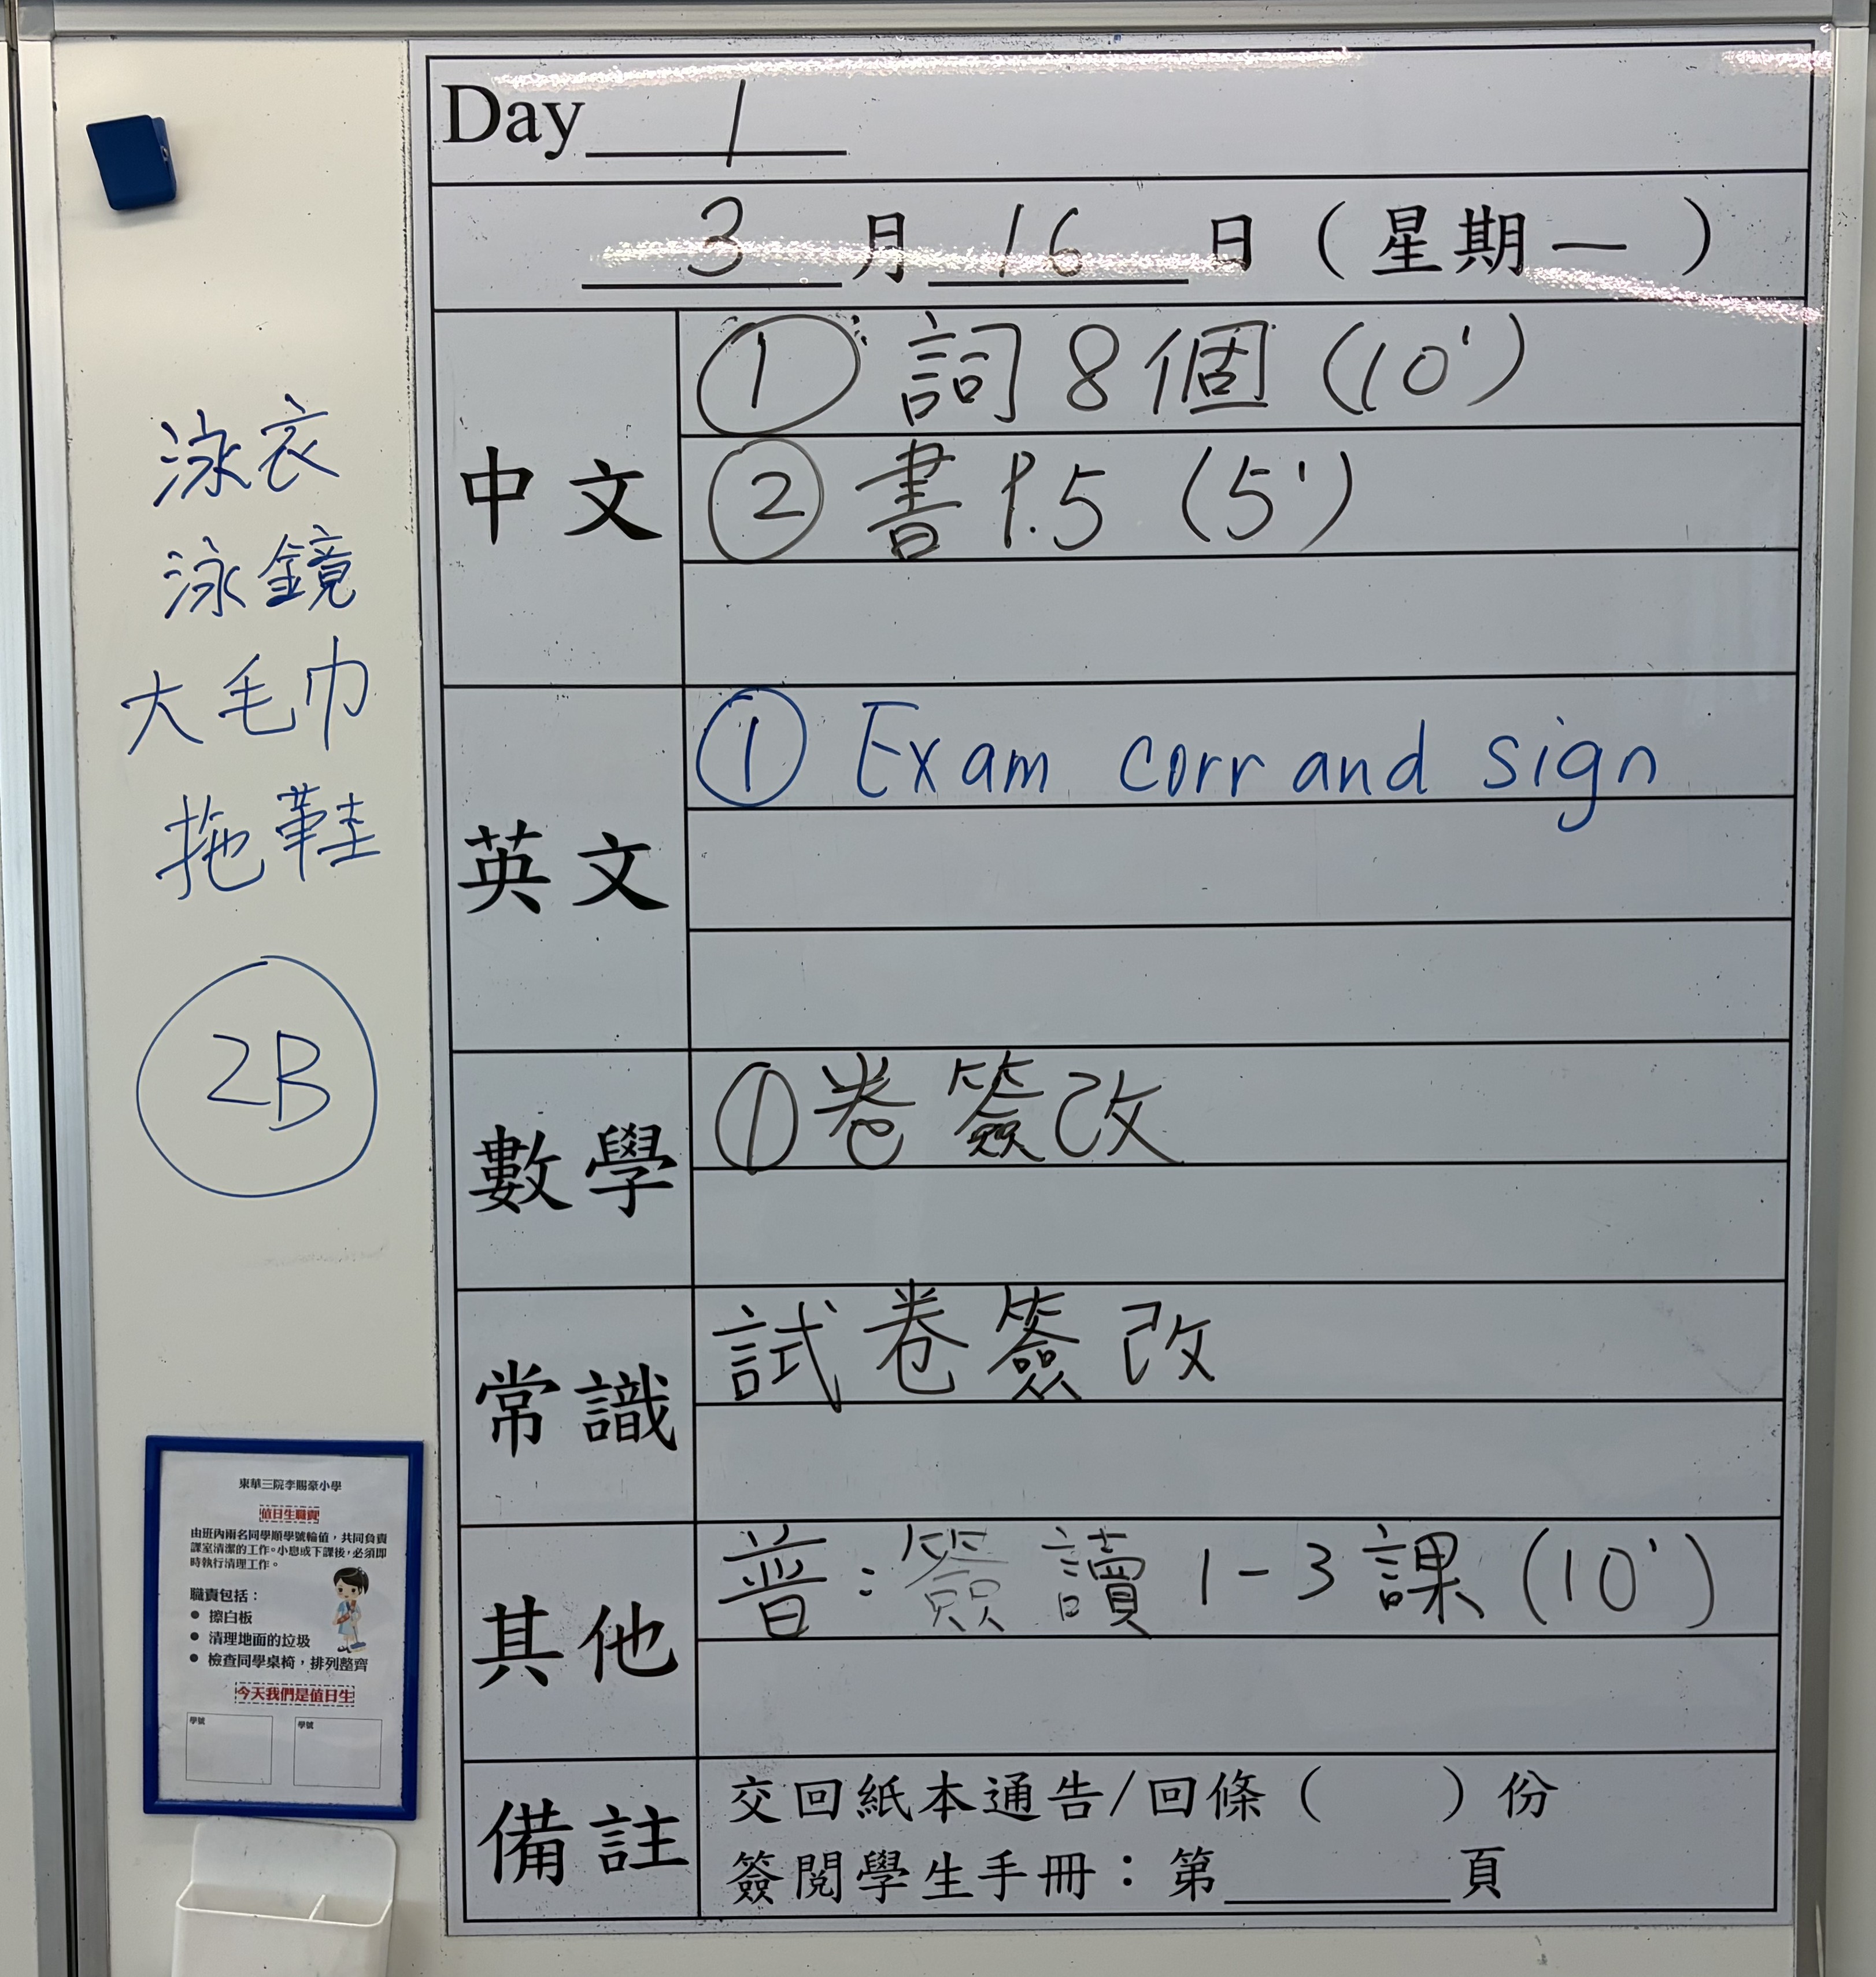 Day 1
3 月 16 日 (星期一 )
中文
① 詞 8 個 (10')
② 書 P.5 (5')
英文
① Exam corr and sign
數學
① 卷簽改
常識
試卷簽改
其他
普：簽讀 1-3 課 (10')
備註
交回紙本通告/回條 ( ) 份
簽閱學生手冊：第____頁
泳衣
泳鏡
大毛巾
拖鞋
2B
東華三院李賜豪小學
值日生職責
由班內兩名同學順學號輪值，共同負責
課室清潔的工作。小息或下課後，必須即
時執行清理工作。
職責包括：
● 擦白板
● 清理地面的垃圾
● 檢查同學桌椅，排列整齊
今天我們是值日生
學號 學號